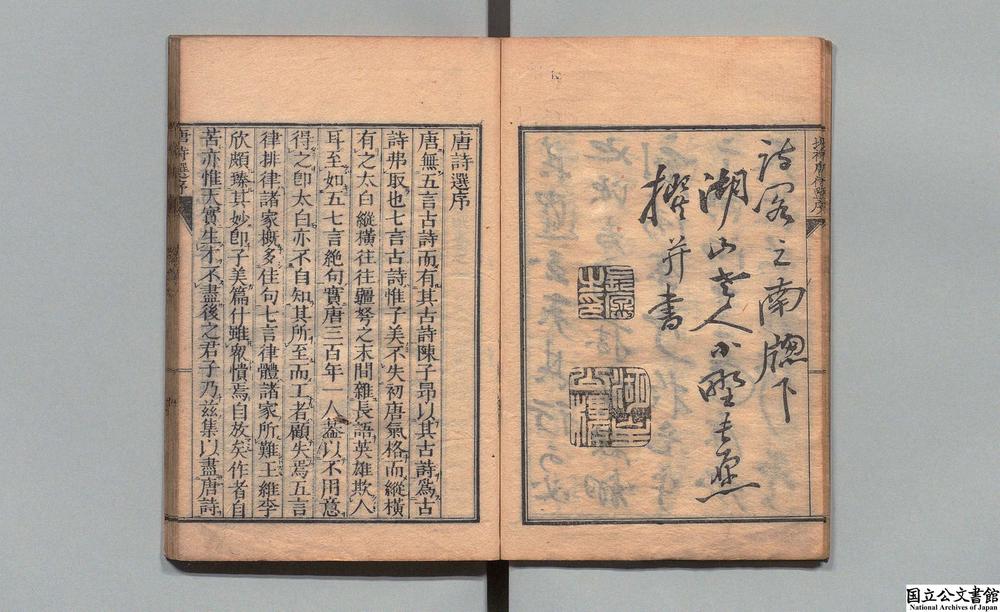 詩之南牕下
湖山老人小野長愿
撰并書
唐詩選序
唐無五言古詩而有其古詩陳子昂以其古詩爲古
詩弗取也七言古詩惟子美不失初唐氣格而縱橫
有之太白縱橫往往疆弩之末間雜長語英雄欺人
耳至如五七言絕句實唐三百年一人葢以不用意
得之卽太白亦不自知其所至而工者顧失焉五言
律排律諸家槪多佳句七言律體諸家所難王維李
欣頗臻其妙卽子美篇什雖衆憒焉自放矣作者自
苦亦惟天實生才不盡後之君子乃茲集以盡唐詩
唐詩選序
国立公文書館
National Archives of Japan